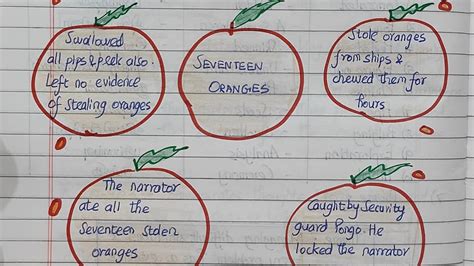 Swallowed
all pips & peek also.
Left no evidence
of Stealing oranges
SEVENTEEN
ORANGES
Stole oranges
from ships &
chewed them for
hours
The narrator
ate all the
Seventeen Stolen
oranges
Caught by Security
guard Pongo. He
locked the narrator